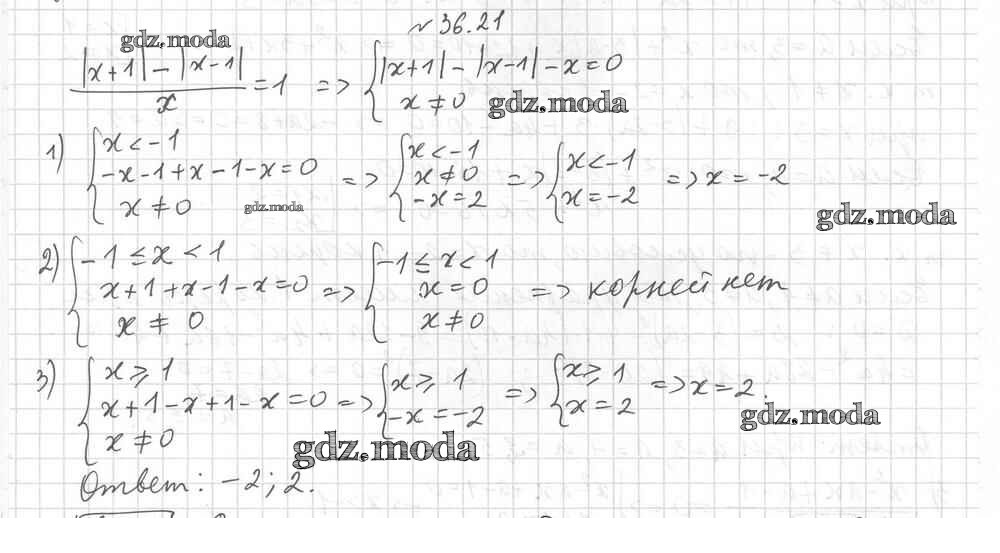 № 36.21
gdz.moda
(|x+1| - |x-1|)/x = 1 => { |x+1| - |x-1| - x = 0
x ≠ 0 gdz.moda
1) { x < -1
-x-1+x-1-x=0
x ≠ 0 gdz.moda
=> { x < -1
x ≠ 0
-x = 2
=> { x < -1
x = -2
=> x = -2
gdz.moda
2) { -1 ≤ x < 1
x+1+x-1-x=0
x ≠ 0
=> { -1 ≤ x < 1
x = 0
x ≠ 0
=> корней нет
3) { x ⩾ 1
x+1-x+1-x=0
x ≠ 0
=> { x ⩾ 1
-x = -2
=> { x ⩾ 1
x = 2
=> x = 2.
gdz.moda
gdz.moda
Ответ: -2; 2.